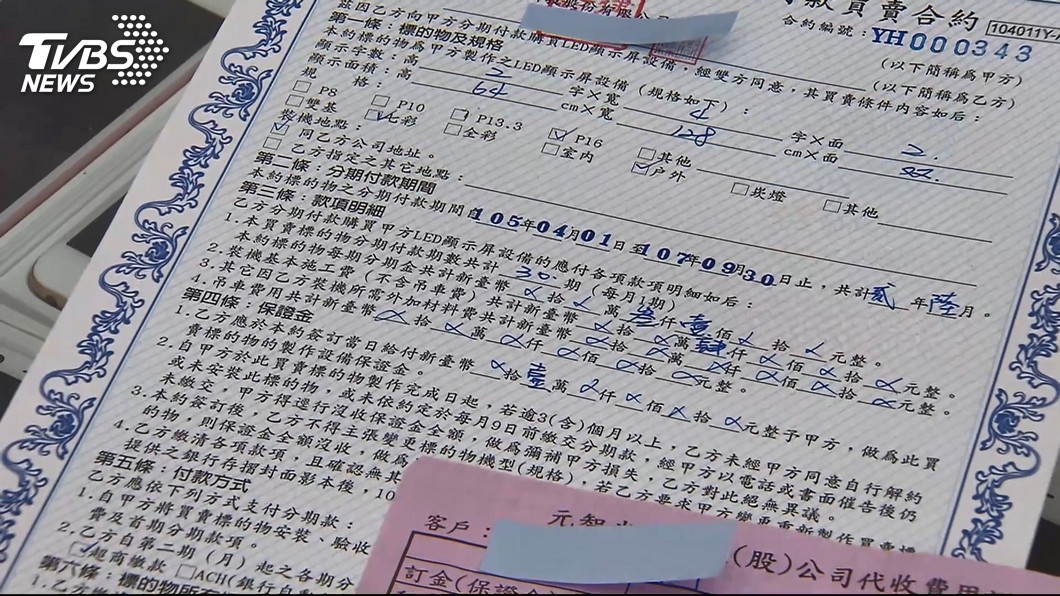 TVBS
NEWS
款買賣合約
104011Y-
合約編號：YH000343
(以下簡稱為甲方)
(以下簡稱為乙方)
茲因乙方向甲方分期付款購買LED顯示屏設備，經雙方同意，其買賣條件內容如后：
第一條：標的物及規格
本約標的物為甲方製作之LED顯示屏設備（規格如下）：
顯示字數：高 2 字×寬 4 字×面 2.
顯示面積：高 64 cm×寬 128 cm×面
規格：
□P8 □P10 □P13.3 ☑P16 □其他
□雙基 ☑七彩 □全彩 □室內 ☑戶外 □崁燈 □其他
裝機地點：
☑同乙方公司地址。
□乙方指定之其它地點：
第二條：分期付款期間
本約標的物之分期付款期間自105年04月01日至107年09月30日止，共計貳年陸月。
第三條：款項明細
乙方分期付款購買甲方LED顯示屏設備的應付各項款項明細如后：
1.本買賣標的物分期付款期數共計 30 期（每月1期）
本約標的物每期分期金共計新臺幣 拾 萬 仟 佰 拾 元整。
2.裝機基本施工費（不含吊車費）共計新臺幣 拾 萬 仟 佰 拾 元整。
3.其它因乙方裝機所需外加材料費共計新臺幣 拾 萬 仟 佰 拾 元整。
4.吊車費用共計新臺幣 拾 萬 仟 佰 拾 元整。
第四條：保證金
1.乙方應於本約簽訂當日給付新臺幣 拾壹萬 仟 佰 拾 元整予甲方，做為此買
賣標的物的製作設備保證金。
2.自甲方於此買賣標的物製作完成日起，若逾3(含)個月以上，乙方未經甲方同意自行解約
或未安裝此標的物，或未依約定於每月9日前繳交分期款，經甲方以電話或書面催告後仍
未繳交，甲方得逕行沒收保證金全額，做為彌補甲方損失，乙方對此絕無異議。
3.本約簽訂後，乙方不得主張變更標的物機型(規格)，若乙方要求甲方變更重新製作買賣標
的物，則保證金全額沒收，做為
4.乙方繳清各項款項，且確認無其
提供之銀行存摺封面影本後，10
第五條：付款方式
乙方應依下列方式支付分期款：
1.自甲方將買賣標的物安裝、驗收
費及首期分期款項。
2.乙方自第二期（月）起之各期分
☑超商繳款 □ACH(銀行自動
第六條：標的物所有
客戶：元智
(股)公司代收費用
訂金(保證金